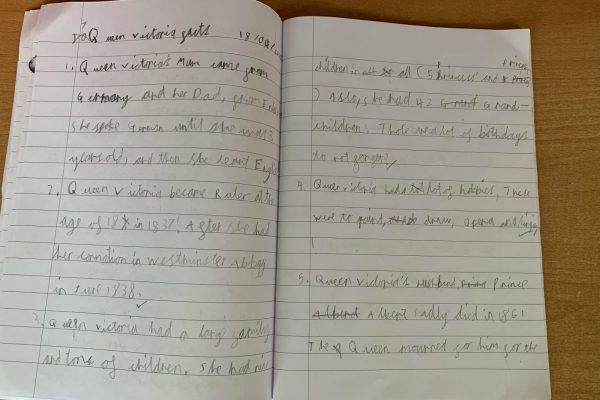 Queen victoria facts
1. Queen victoria's Mum came from
Germany and her Dad, from
she spoke German until she was 3
years old, and then she leant
2. Queen victoria became Ruler at the
age of 18 in 1837! After she had
her in westminster Abbey
in 1838.
3. Queen victoria had a large family
and tons of children. She had nine
children in all (5 Princess' and 4 Prince
) Also, she had 42 Grand-
children! Those are a lot of birthdays
to not forget!
4. Queen victoria had a lot of hobbies, These
were to paint, draw, opera and
!
5. Queen victoria's Husband, Prince
Albert sadly died in 1861
The Queen mourned for him for the